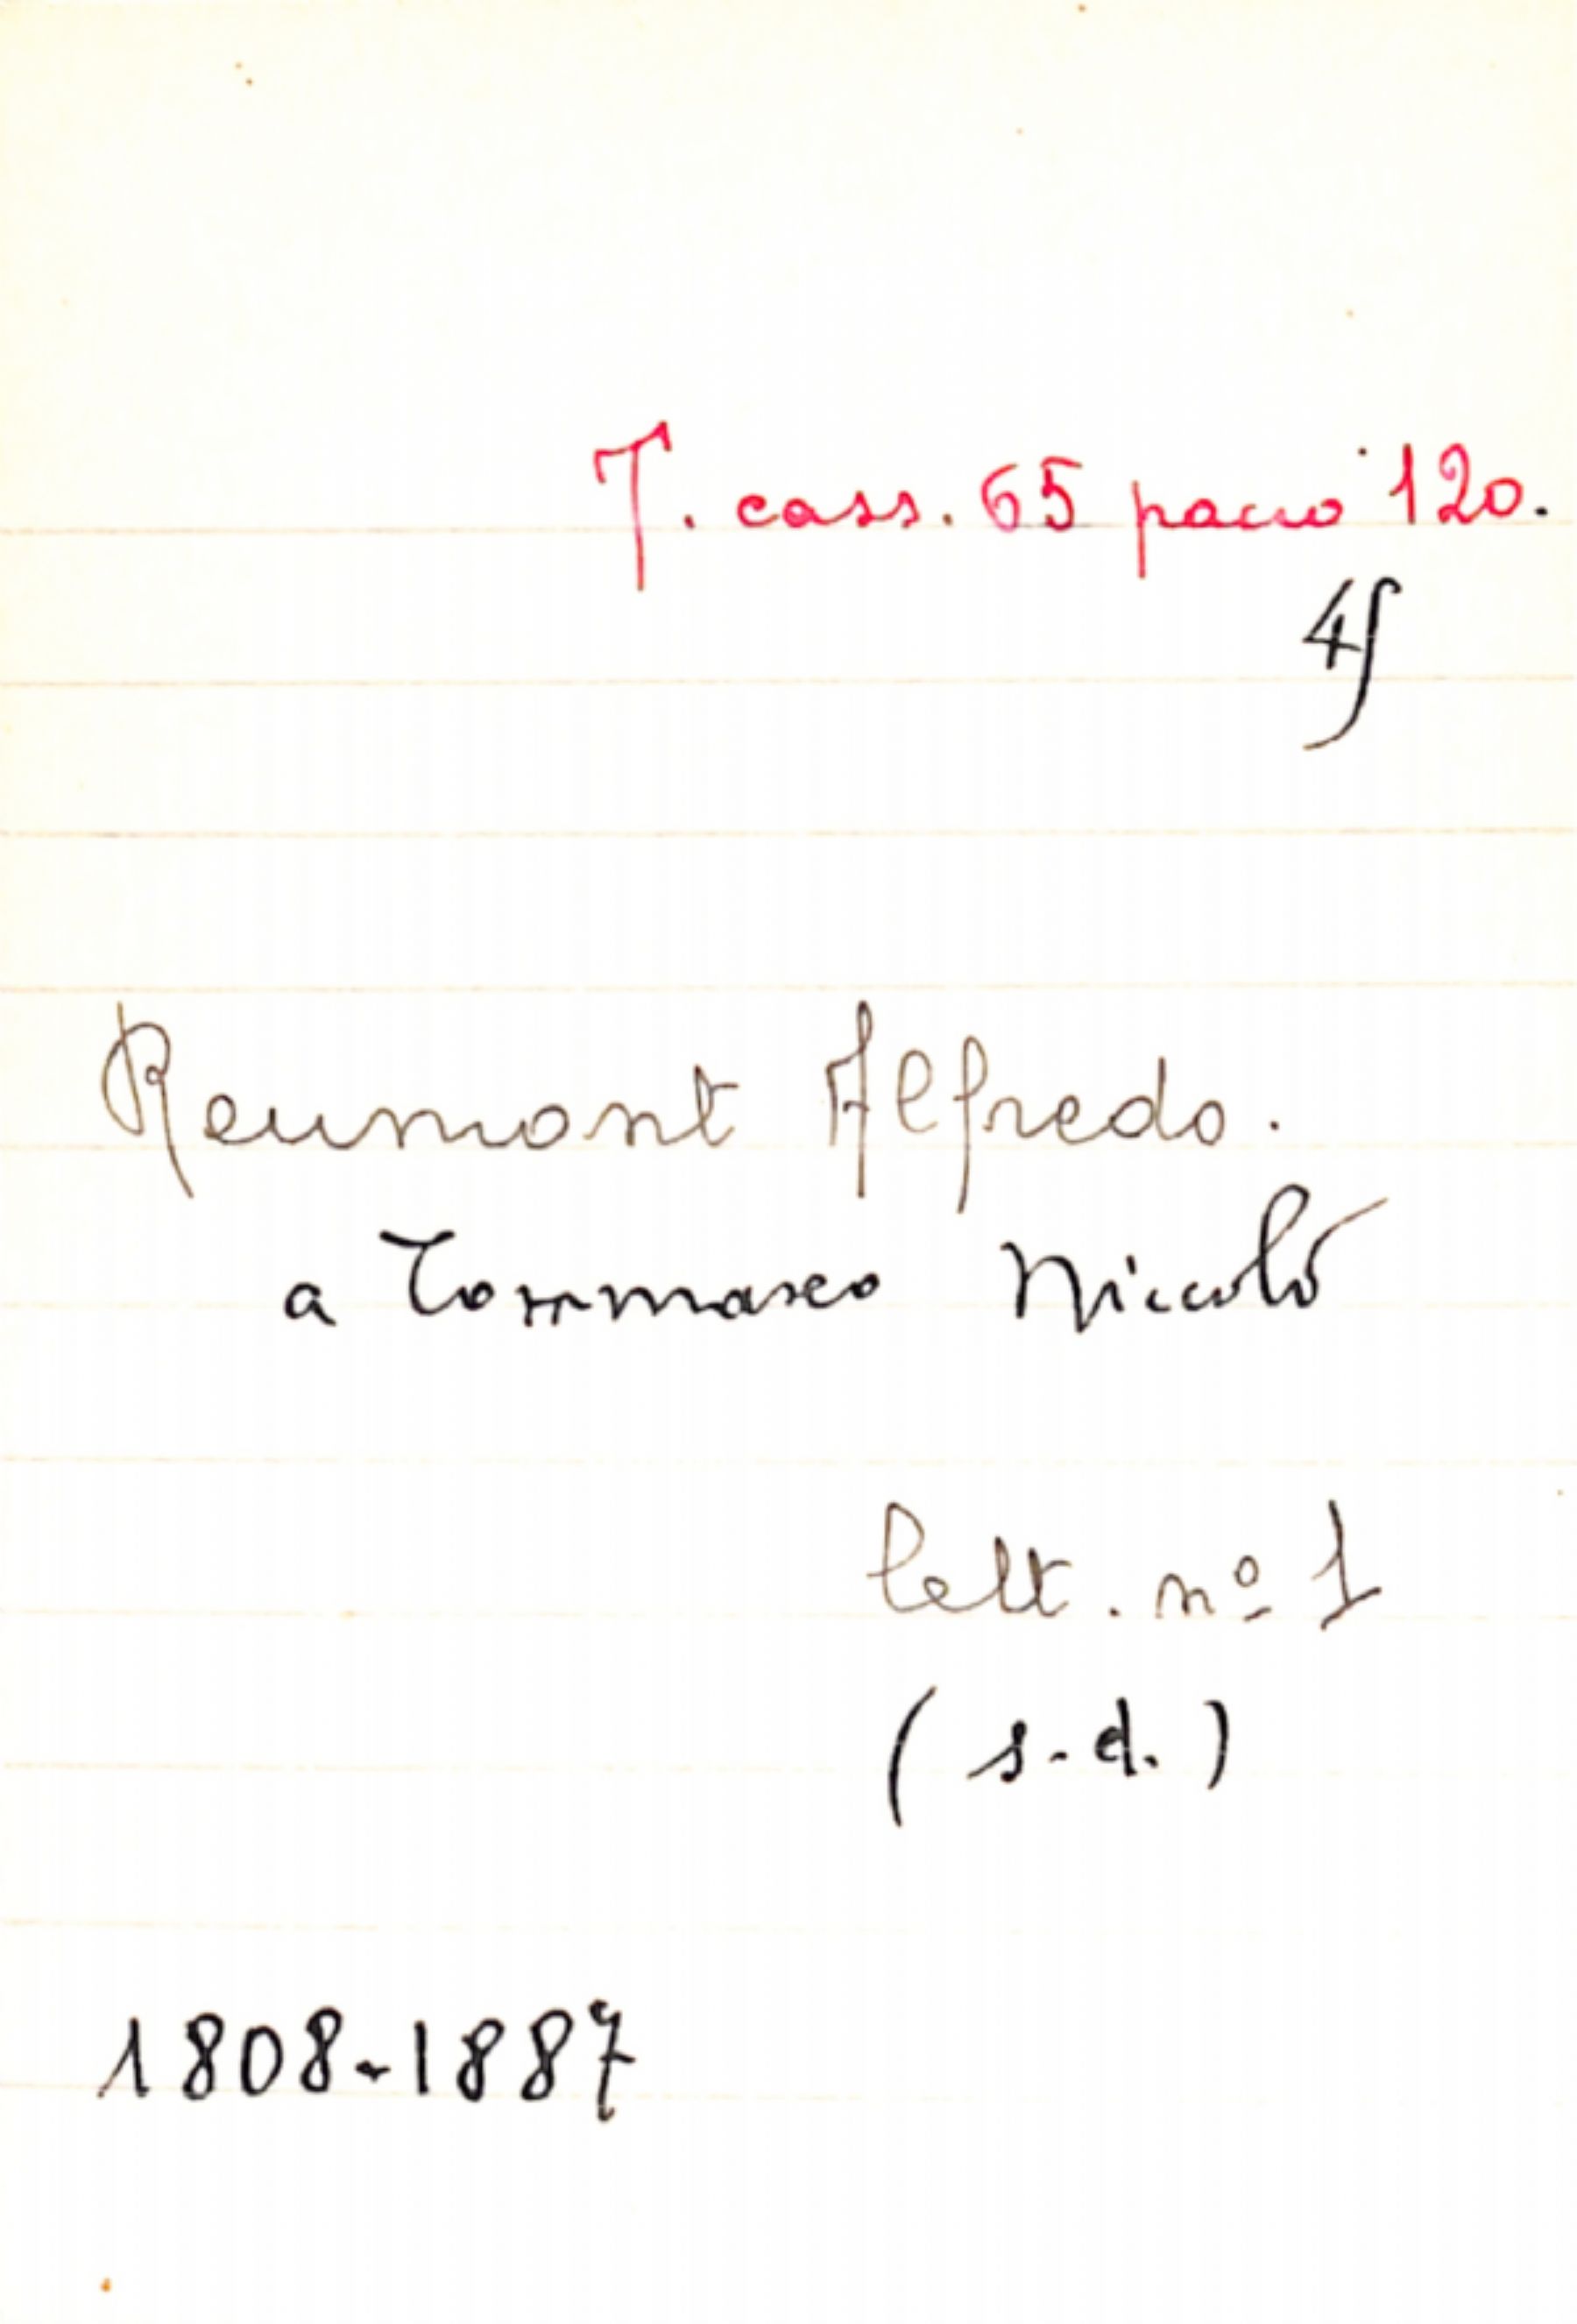 T. cass. 65 pacco 120.
4
Reumont Alfredo.
a Tommaseo Niccolò
lett. nº 1
(s.d.)
1808-1887